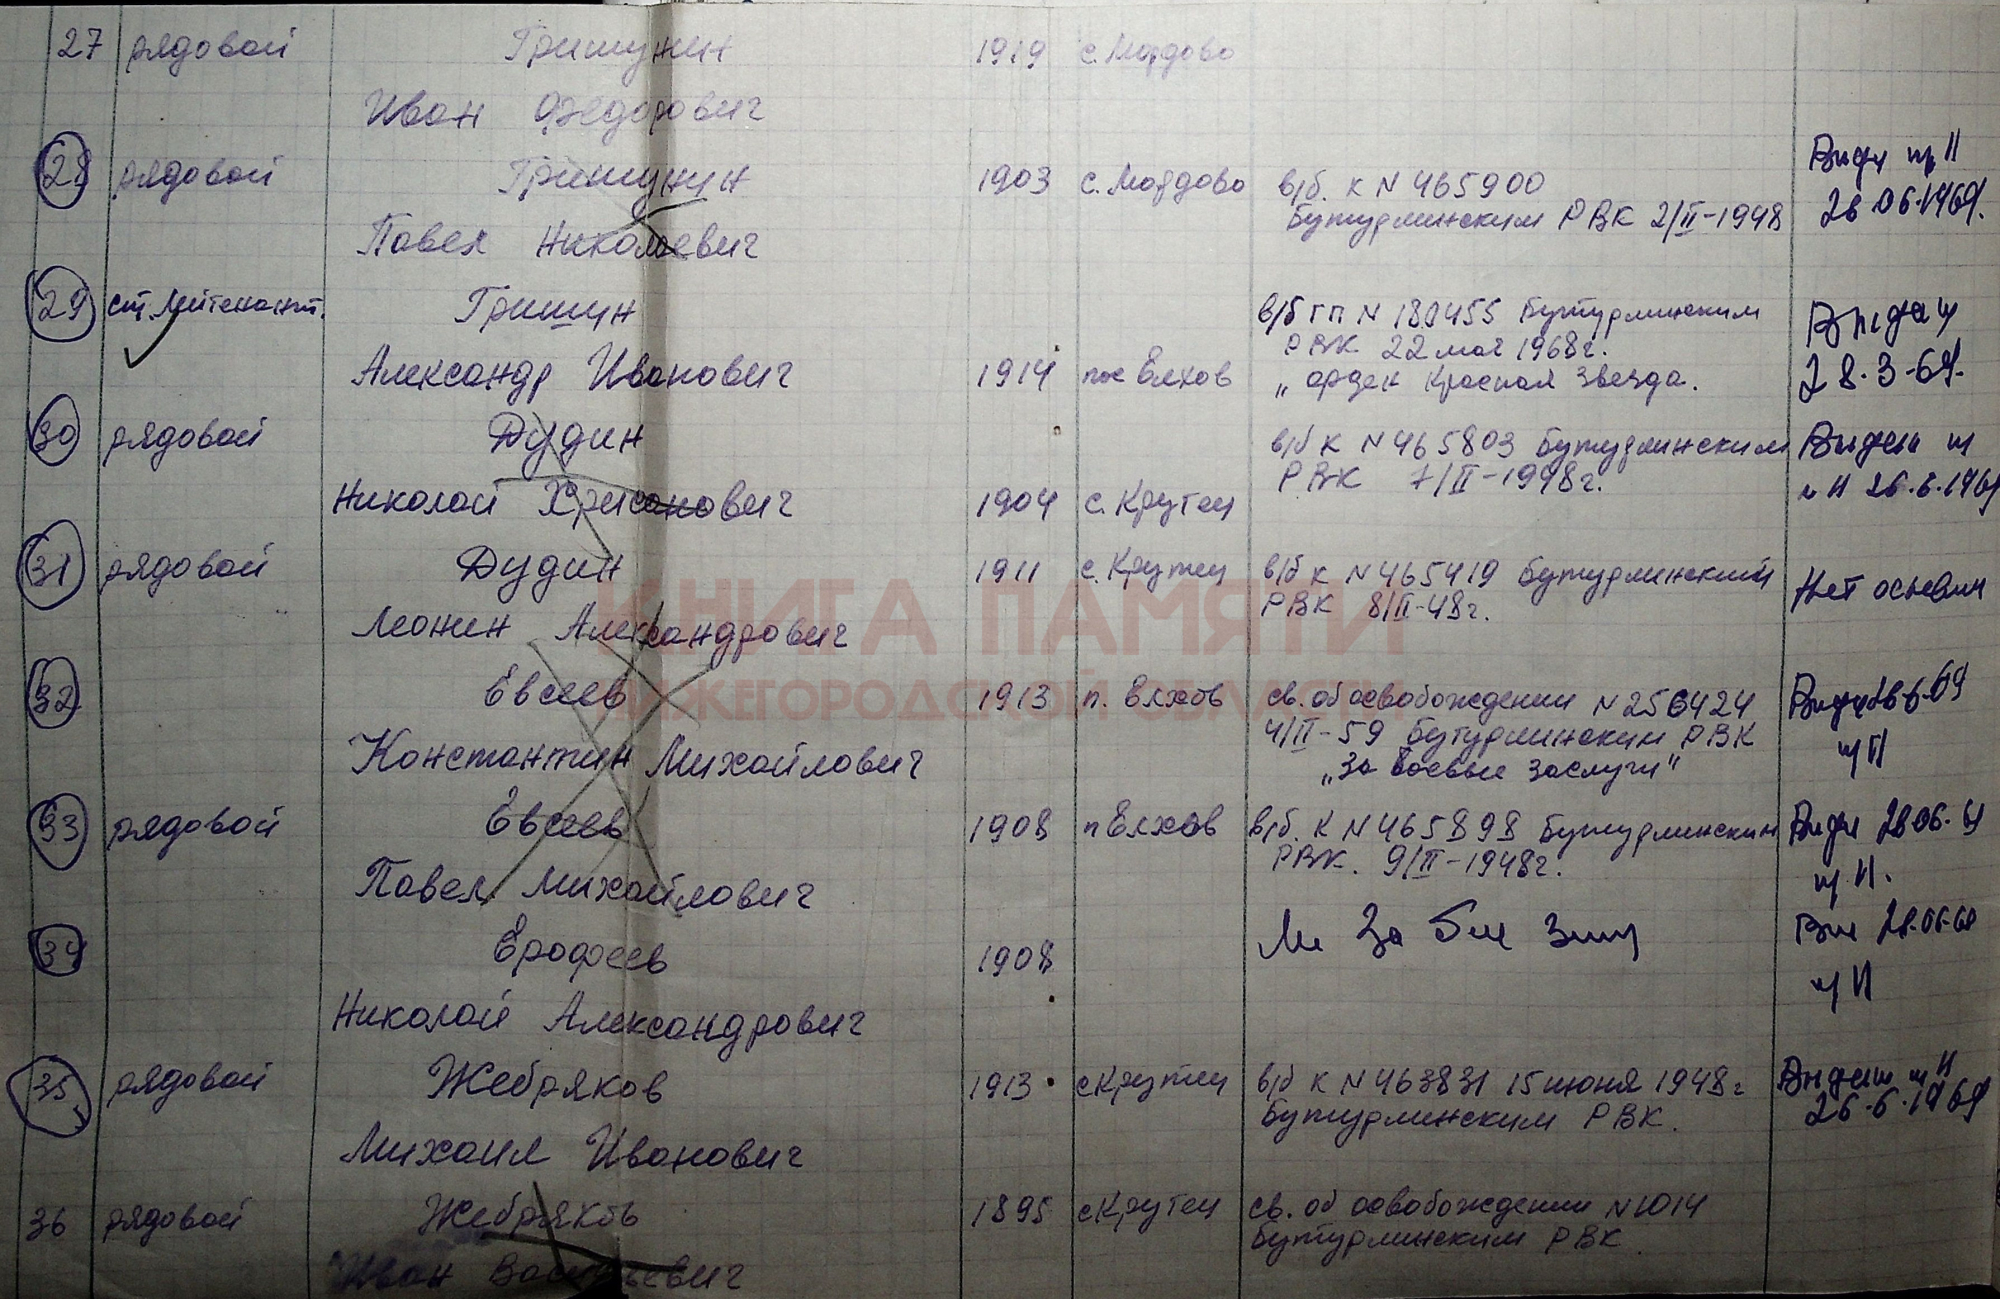 27 рядовой Гришунин 1919 с. Мордово
Иван Федорович
28 рядовой Гришунин 1903 с. Мордово в/б. к N 465900
Бутурлинским РВК 2/II-1948
28.06.1969.
Павел Николаевич
29 ст. лейтенант. Гришин в/б ГП N 180455 Бутурлинским
РВК 22 мая 1968г.
Александр Иванович 1914 пос Елхов „ орден Красная Звезда.
28.3-69.
30 рядовой Дудин в/б к N 465803 Бутурлинским
РВК 7/II-1948г.
Николай Хрисанович 1904 с. Крутец
31 рядовой Дудин 1911 с. Крутец в/б к N 465419 Бутурлинский
РВК 8/II-48г.
Нет основан
Леонид Александрович
КНИГА ПАМЯТИ
НИЖЕГОРОДСКОЙ ОБЛАСТИ
32 Евсеев 1913 п. Елхов св. об освобождении N 256424
4/II-59 Бутурлинским РВК
Константин Михайлович „За боевые заслуги"
33 рядовой Евсеев 1908 п Елхов в/б. К N 465898 Бутурлинским
РВК. 9/II-1948г.
Павел Михайлович
34 Ерофеев 1908
Николай Александрович
35 рядовой Жебряков 1913 с Крутец в/б к N 463831 15 июня 1948г
Бутурлинским РВК.
26.6.1969
Михаил Иванович
36 рядовой Жебряков 1895 с Крутец св. об освобождении N 1014
Бутурлинским РВК
Иван Васильевич